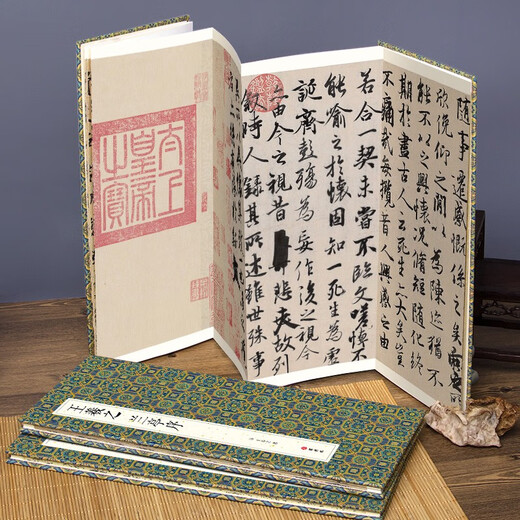 隨事遷感慨係之矣向之所
欣俛仰之間以為陳迹猶不
能不以之興懷況脩短隨化終
期於盡古人云死生亦大矣豈
不痛哉每攬昔人興感之由
若合一契未嘗不臨文嗟悼不
能喻之於懷固知一死生為虛
誕齊彭殤為妄作後之視今
亦由今之視昔悲夫故列
敘時人錄其所述雖世殊事
太上
皇帝
之寶
王羲之 兰亭序